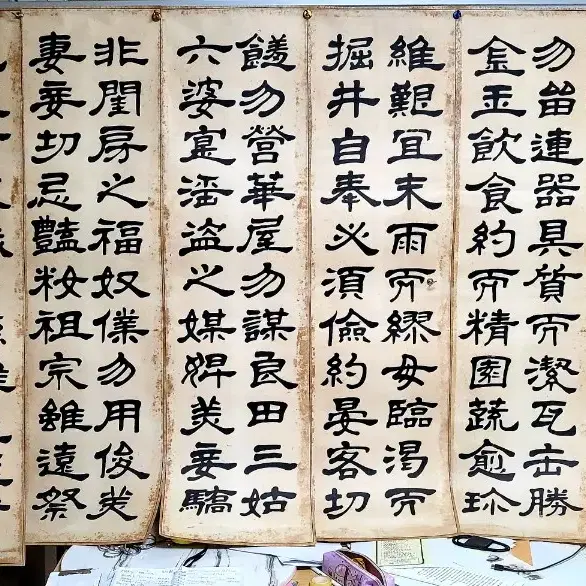 勿留連器具質而潔瓦缶勝
金玉飲食約而精園蔬愈珎
維艱宜未雨而繆毋臨渴而
掘井自奉必須儉約晏客切
饈勿營華屋勿謀良田三姑
六婆寔淫盜之媒婢美妾驕
非閨房之福奴僕勿用俊美
妻妾切忌豔籹祖宗雖遠祭